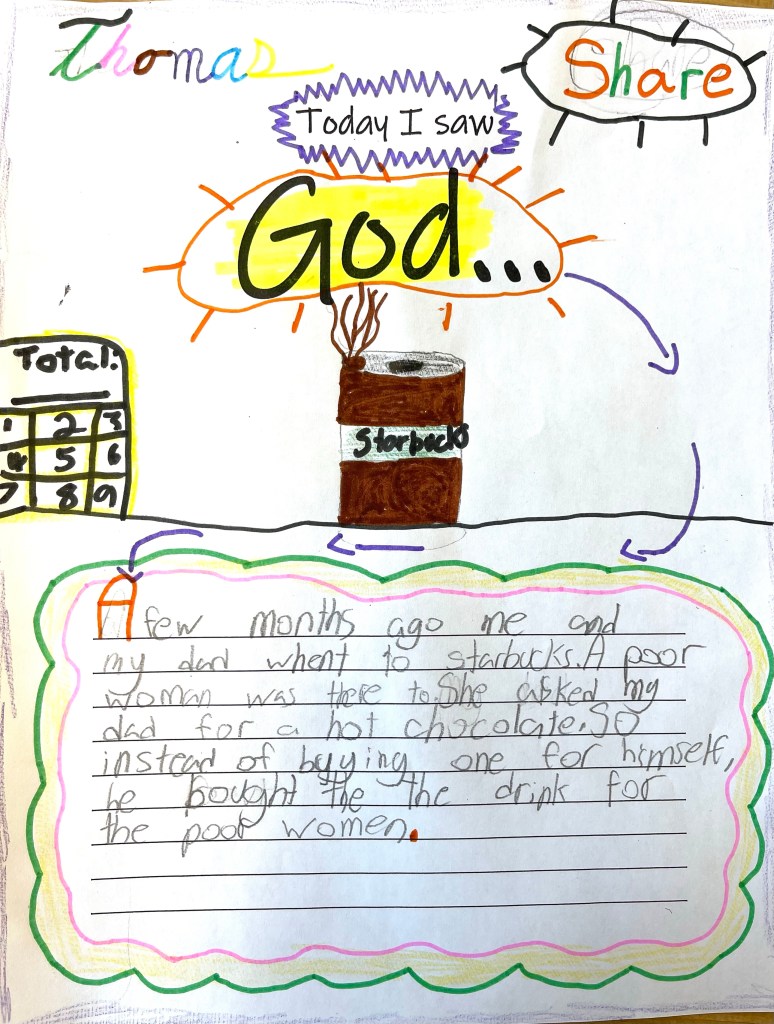 Thomas
Share
Today I saw
God...
Total:
1 2 3
4 5 6
7 8 9
Starbucks
A few months ago me and
my dad whent to starbucks. A poor
woman was there to. She asked my
dad for a hot chocolate. So
instead of buying one for himself,
he bought the the drink for
the poor women.